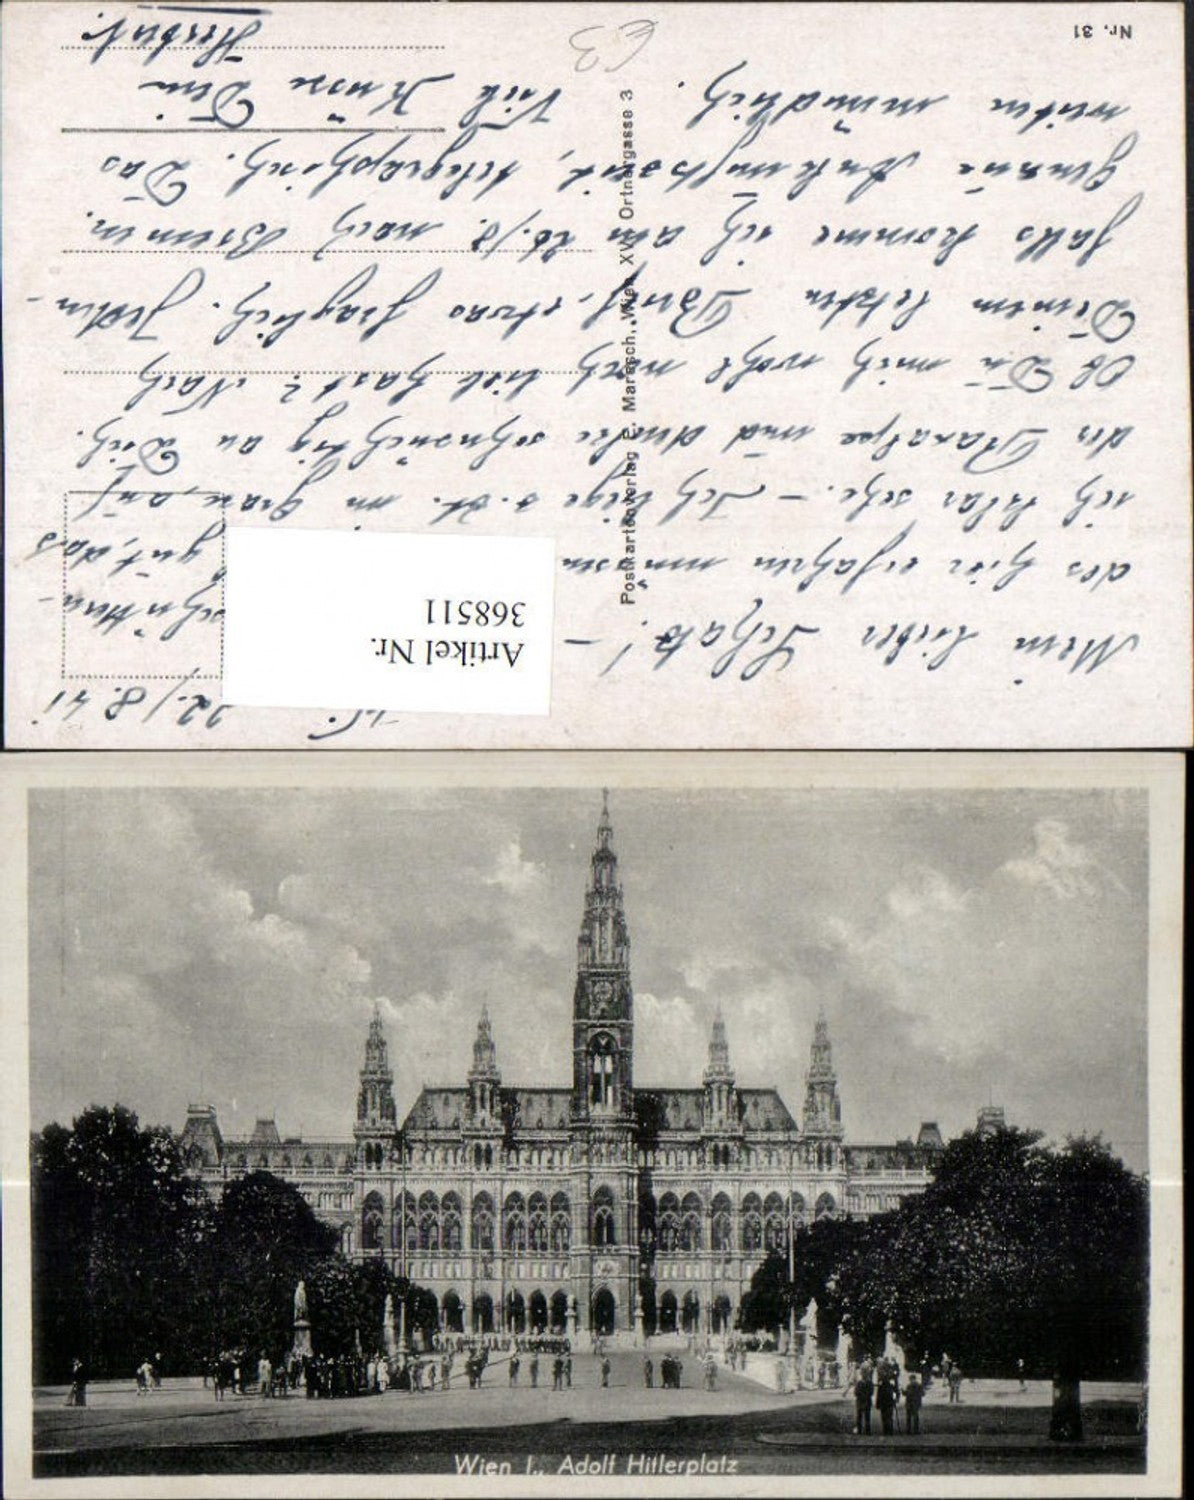 22./8.41
Mein lieber Schatz! —
des hier erfahren müssen gut, dass
ich klar sehe. — Ich liege z. Zt. im Grase, auf
der Raxalpe und denke sehnsüchtig an Dich.
Ob Du mich wohl noch lieb hast? Nach
Deinem letzten Brief, etwas fraglich. Jeden-
falls komme ich am 26./8. nach Bremen.
Genaue Ankunftszeit, telegraphisch. Das
weitere mündlich. Viele Küsse Dein
Herbert.
€3
Nr. 31
Postkartenverlag E. Maresch, Wien XVI, Ortnergasse 3
Artikel Nr.
368511
Wien I., Adolf Hitlerplatz